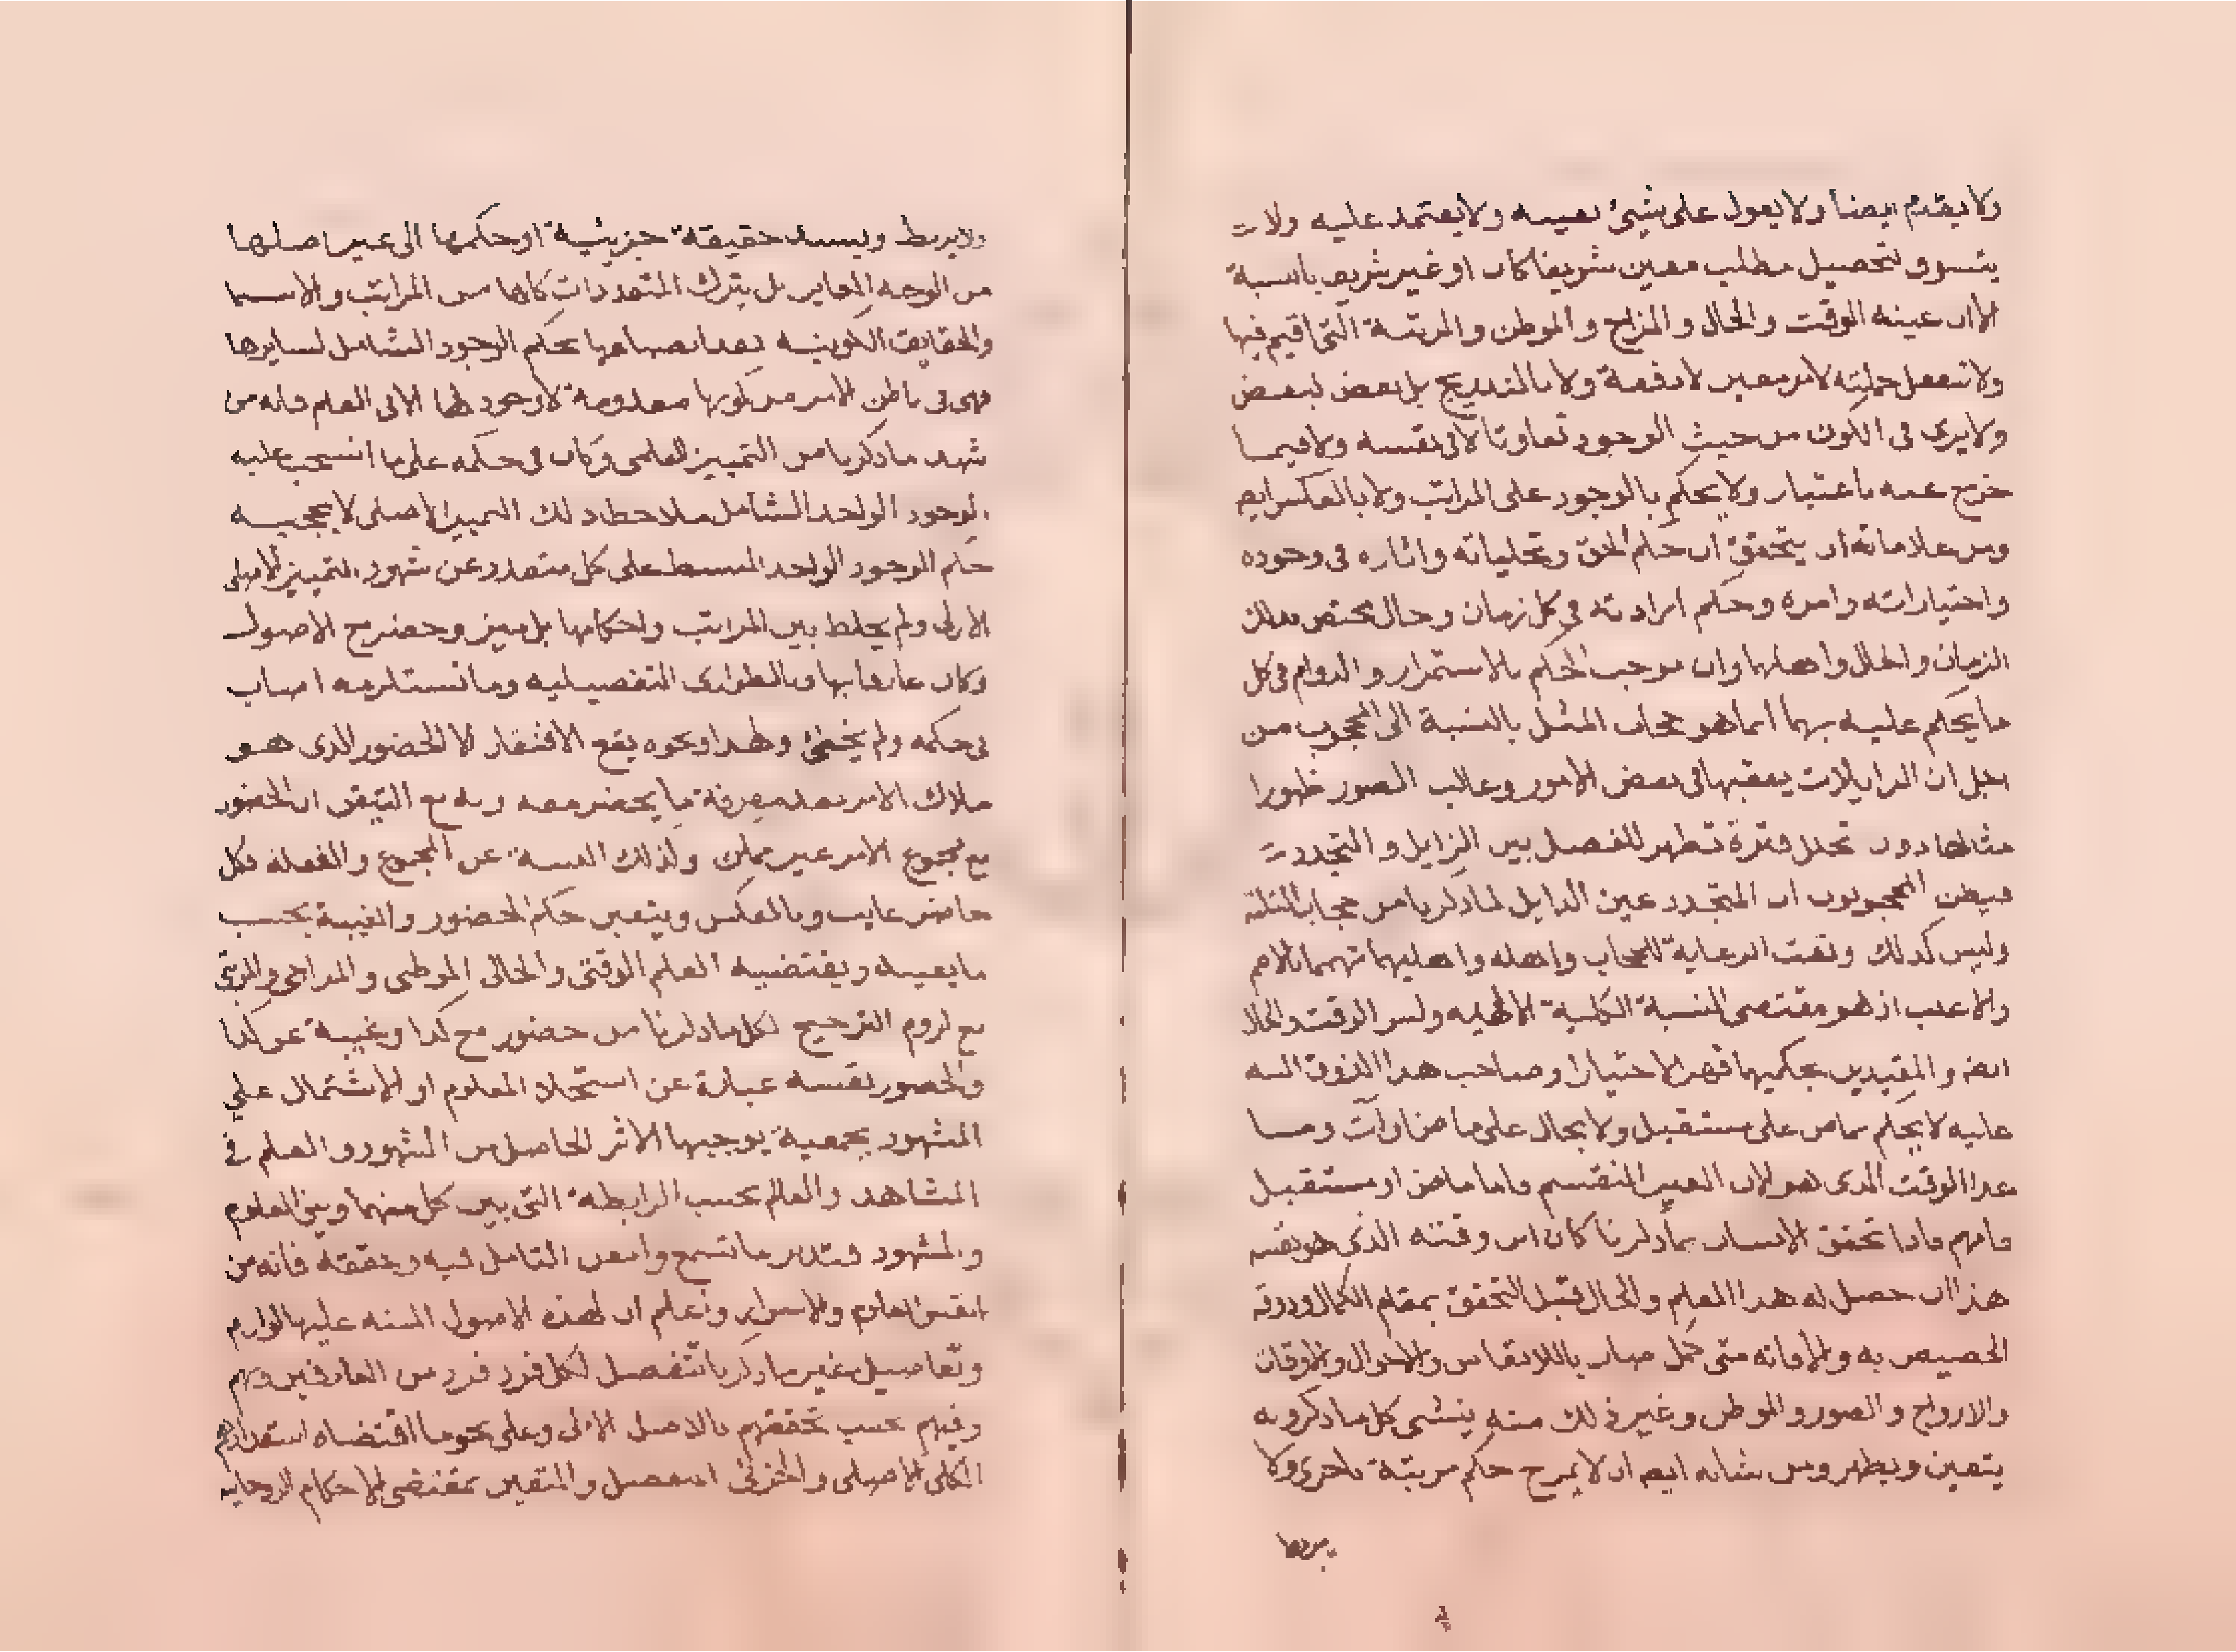 ولا يقدم ايضا ولا يعول على شيئ بعينه ولا يعتمد عليه ولا
يتسوق لتحصيل مطلب معين شريفا كان او غير شريف بالنسبة
الا ان عينه الوقت والحال والمزاج والموطن والمرتبة التي اقيم فيها
ولا تنفعل جملته لامر معين لا دفعة ولا بالتدريج بل بعض لبعض
ولا يرى فى الكون من حيث الوجود تفاوتا لا فى نفسه ولا فيما
خرج عنه باعتبار ولا يحكم بالوجود على المراتب ولا بالعكس ايضا
ومن علاماته ان يتحقق ان حكم الحق وتجلياته واثاره فى وجوده
واختياراته وامره وحكم ارادته فى كل زمان وحال يختص بذلك
الزمان والحال واهلها وان موجب الحكم بالاستمرار والدوام فى كل
ما يحكم عليه بهما انما هو حجاب المثل بالنسبة الى المحجوب من
اجل ان الزايلات يعقبها فى بعض الامور وغالب الصور ظهور
مثالها دون تخلل فترة تظهر للفصل بين الزايل والمتجدد
فيظن المحجوبون ان المتجدد عين الزايل لما ذكرنا من حجاب المثلية
وليس كذلك وتفت الرعاية للحجاب واهله
والاغلب اذ هو مقتضى النسبة الكلية الالهيه وليس الوقت والحال
والمقيدين بحكميهما قهرا لا اختيارا وصاحب هذا الذوق
عليه لا يحكم بماض على مستقبل ولا بحال على ماض او آت وما
عدا الوقت الذى هو الان الغير المنقسم واما ماض او مستقبل
فافهم فاذا تحقق الانسان بما ذكرنا كان ابن وقته الذى هو نفسه
هذا ان حصل له هذا العلم والحال قبل التحقق بمقام الكمال وذوقه
الخصيص به والا فانه متى كمل صار بالانفاس والاحوال والاوقات
والارواح والصور والموطن وغير ذلك منه ينشى كل ما ذكر وبه
يتعين ويظهر ومن شانه ايضا ان لا يمزج حكم مرتبة باخرى ولا
يربط
ولا يربط ويسند حقيقة جزيئية او حكمها الى غير اصلها
من الوجه المغاير بل يترك المتعددات كلها من المراتب والاسما
والحقايق الكونيه بعد انصباغها بحكم الوجود الشامل لسايرها
فهى فى باطن الامر من كونها معدومة لا وجود لها الا فى العلم فانه من
شهد ما ذكرنا من التمييز العلمى وكان فى حكمه على ما انسحب عليه
الوجود الواحد الشامل ملاحظا ذلك التمييز الاصلى لا يحجبه
حكم الوجود الواحد المنبسط على كل متعدد عن شهود التمييز الاصلى
الازلى ولم يخلط بين المراتب واحكامها بل ميز وحضر مع الاصول
وكان عارفا بها وبالطوارى التفصيليه وما تستلزمه اصاب
فى حكمه ولم يخطئ ولهذا ونحوه يقع الافتقار الا للحضور الذى هو
ملاك الامر بعد معرفة ما يحضر معه وبه مع التيقن ان الحضور
مع مجموع الامر غير ممكن ولذلك الغيبة عن المجموع والغفلة فكل
حاضر غايب وبالعكس ويتعين حكم الحضور والغيبة بحسب
ما يعينه ويقتضيه العلم الوقتى والحالى الموطنى والمزاجى والمرتبى
مع لزوم الترجيح لكل ما ذكرنا من حضور مع كذا وغيبة عن كذا
والحضور نفسه عبارة عن استجلاء المعلوم او الاشتمال على
المشهود بجمعية يوجبها الاثر الحاصل من المشهود والعلم فى
المشاهد والعالم بحسب الرابطة التى بين كل منهما وبين المعلوم
والمشهود فتدبر ما تسمع وامعن التامل فيه وحققه فانه من
انفس العلوم والاسرار واعلم ان لهذه الاصول المنبه عليها لوازم
وتفاصيل غير ما ذكرنا تتفصل لكل فرد فرد من العارفين
وفيهم بحسب تحققهم بالاصل الاول وعلى نحو ما اقتضاه استعدادهم
الكلى الاصلى والجزئى المفصل والمتعين بمقتضى الاحكام الروحانيه